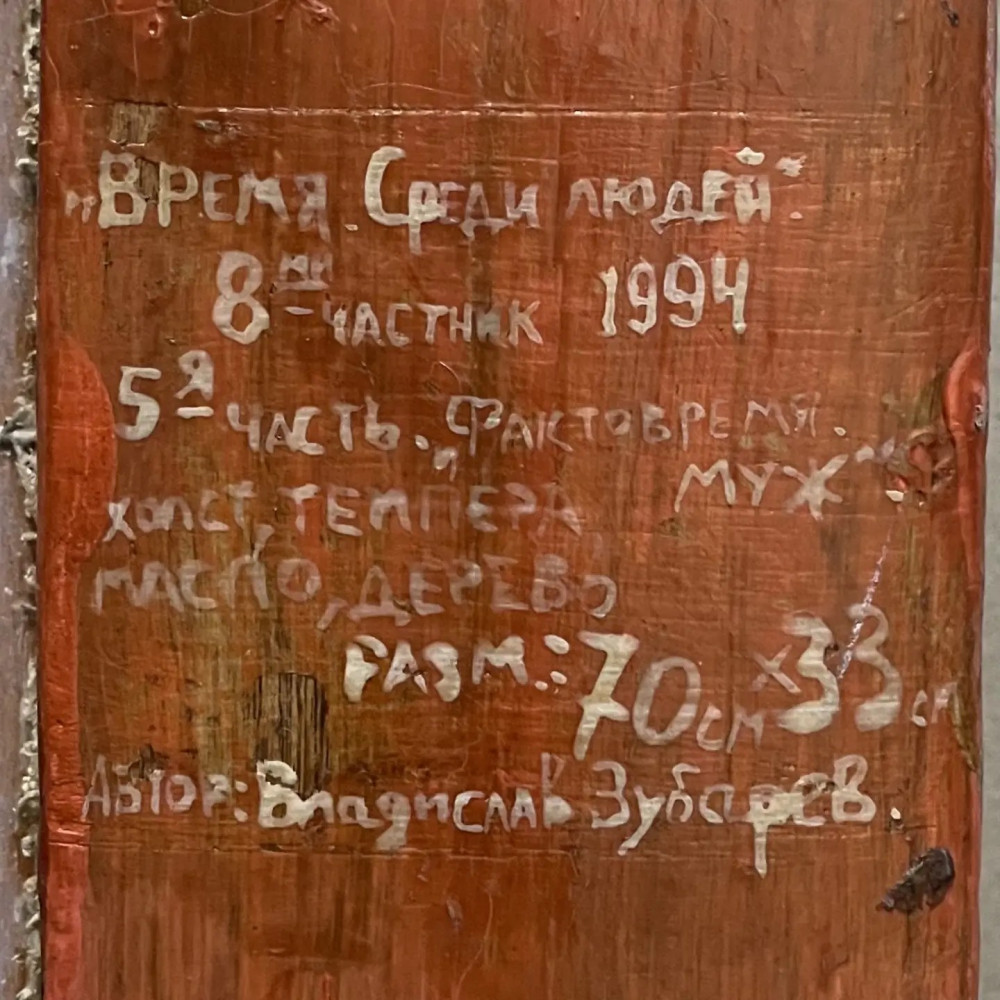 „Время Среди людей"
8ми-частник 1994
5я часть. Фактовремя.
„МУЖ"
холст, темпера,
масло, дерево
разм.: 70см х 33см
Автор: Владислав Зубарев.